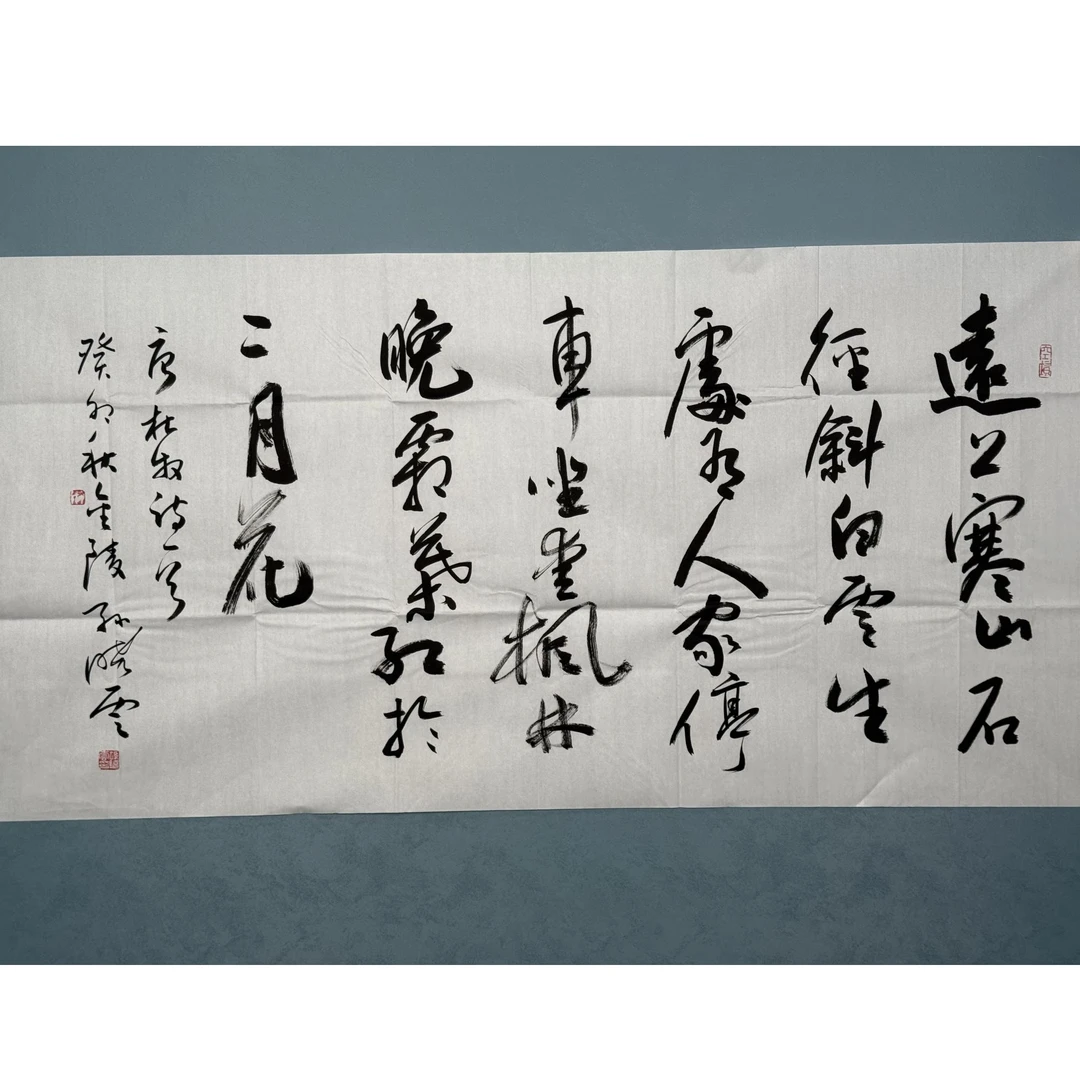 遠上寒山石
徑斜白雲生
處有人家停
車坐愛楓林
晚霜葉紅於
二月花
唐杜牧詩一首
癸卯秋金陵孫曉雲